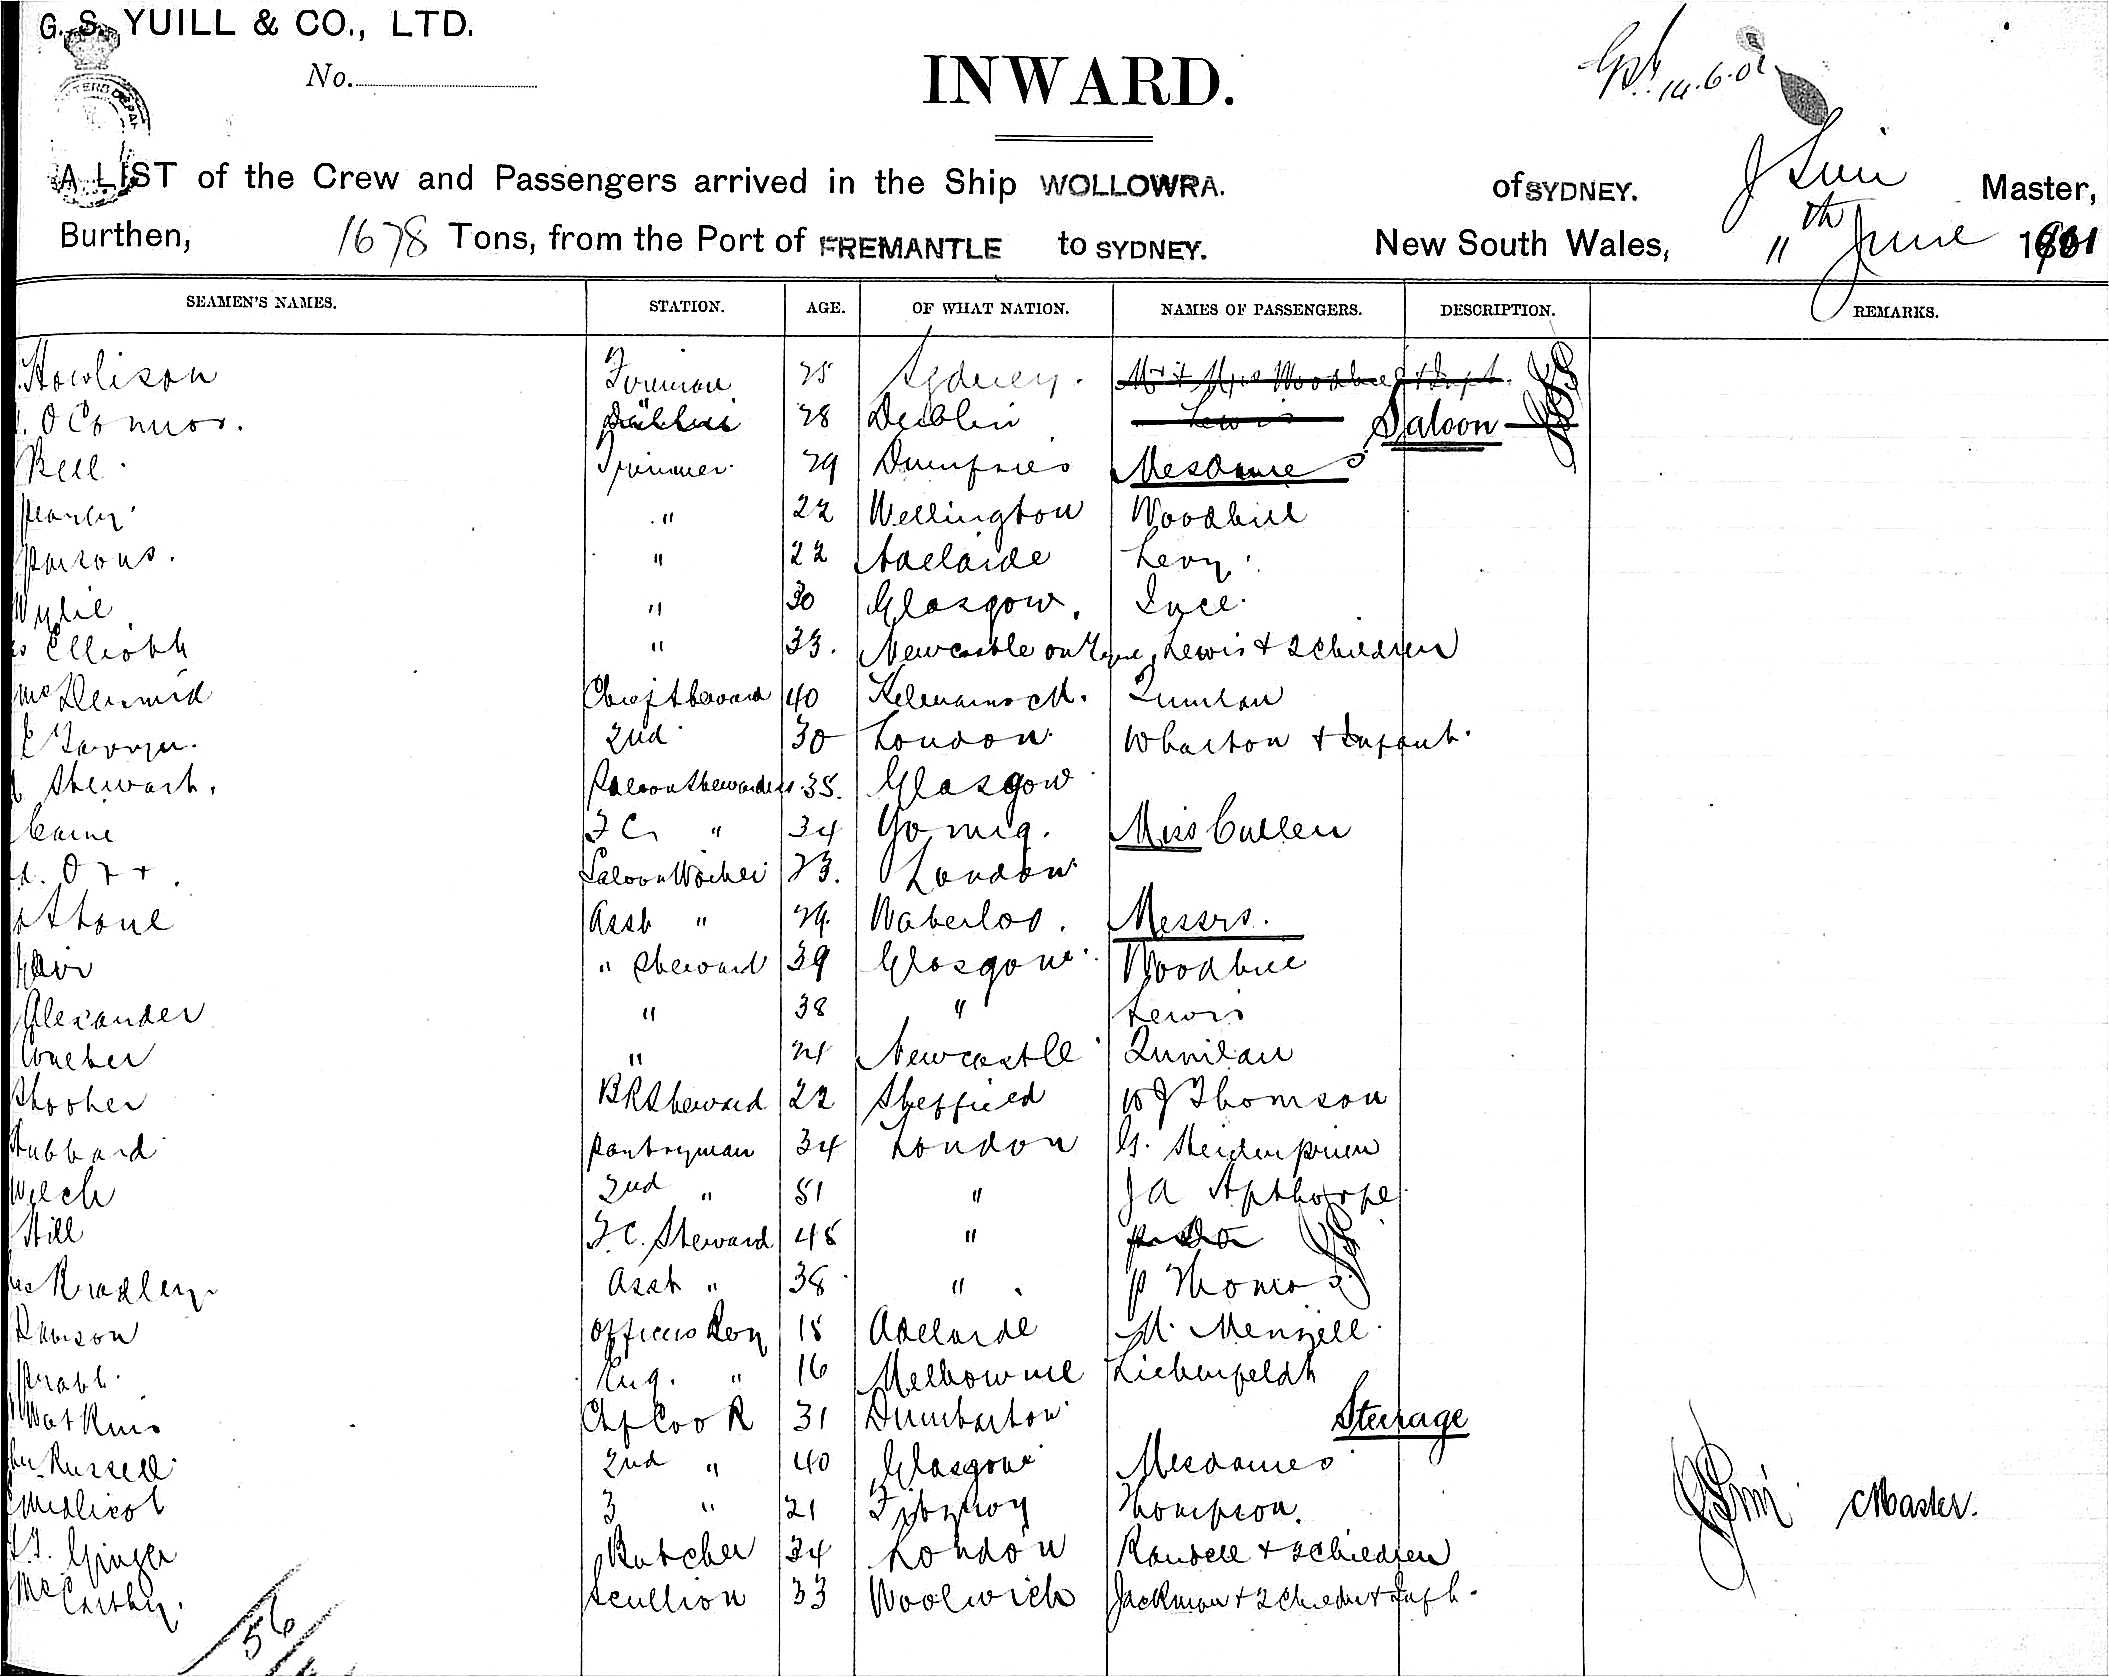 G. S. YUILL & CO., LTD.
No.
INWARD.
14.6.01
A LIST of the Crew and Passengers arrived in the Ship WOLLOWRA. of SYDNEY. J Sim Master,
Burthen, 1678 Tons, from the Port of FREMANTLE to SYDNEY. New South Wales, 11th June 1901
SEAMEN'S NAMES. STATION. AGE. OF WHAT NATION. NAMES OF PASSENGERS. DESCRIPTION. REMARKS.
Howlison Fireman 25 Sydney. Mr & Mrs Woodhill & Inft.
O'Connor. " 28 Dublin Lewis Saloon
Bell Trimmer 29 Dumfries Mesdames
" 22 Wellington Woodhill
Parsons. " 22 Adelaide Levy
Wylie " 30 Glasgow. Ince
Elliott " 33. Newcastle on Tyne Lewis & 2 children
McDermid Chief Steward 40 Kilmarnock. Quinlan
2nd 30 London Wharton & Infant.
Stewart. Saloon Stewardess 35. Glasgow
Caine F C " 34 Miss Cullen
Orr. Saloon Waiter 23. London
Stone Asst " 29. Waterloo. Messrs.
Weir " Steward 39 Glasgow Woodhill
Alexander " 38 " Lewis
" 21 Newcastle Quinlan
BR Steward 22 Sheffield W J Thomson
Hubbard Pantryman 34 London G.
Welch 2nd " 51 " J A Apthorpe
Hill F.C. Steward 48 "
Bradley Asst " 38 " P Thomas
Officers Boy 18 Adelaide M. Menzell
Pratt Eng. " 16 Melbourne Liebenfeldt
Watkins Chf Cook 31 Dumbarton Steerage
Russell 2nd " 40 Glasgow Mesdames
Medlicot 3 " 21 Fitzroy Thompson.
Ginger Butcher 34 London Randell & 2 children
McCarthy. Scullion 33 Woolwich Jackman & 2 Childn & Inft.
J Sim Master.
56